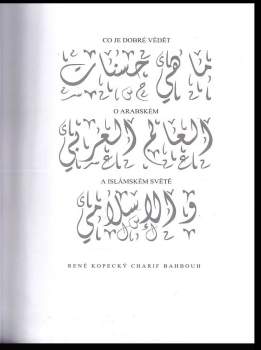 CO JE DOBRÉ VĚDĚT
ما هي حسنات
O ARABSKÉM
العالم العربي
A ISLÁMSKÉM SVĚTĚ
والإسلامي
RENÉ KOPECKÝ CHARIF BAHBOUH